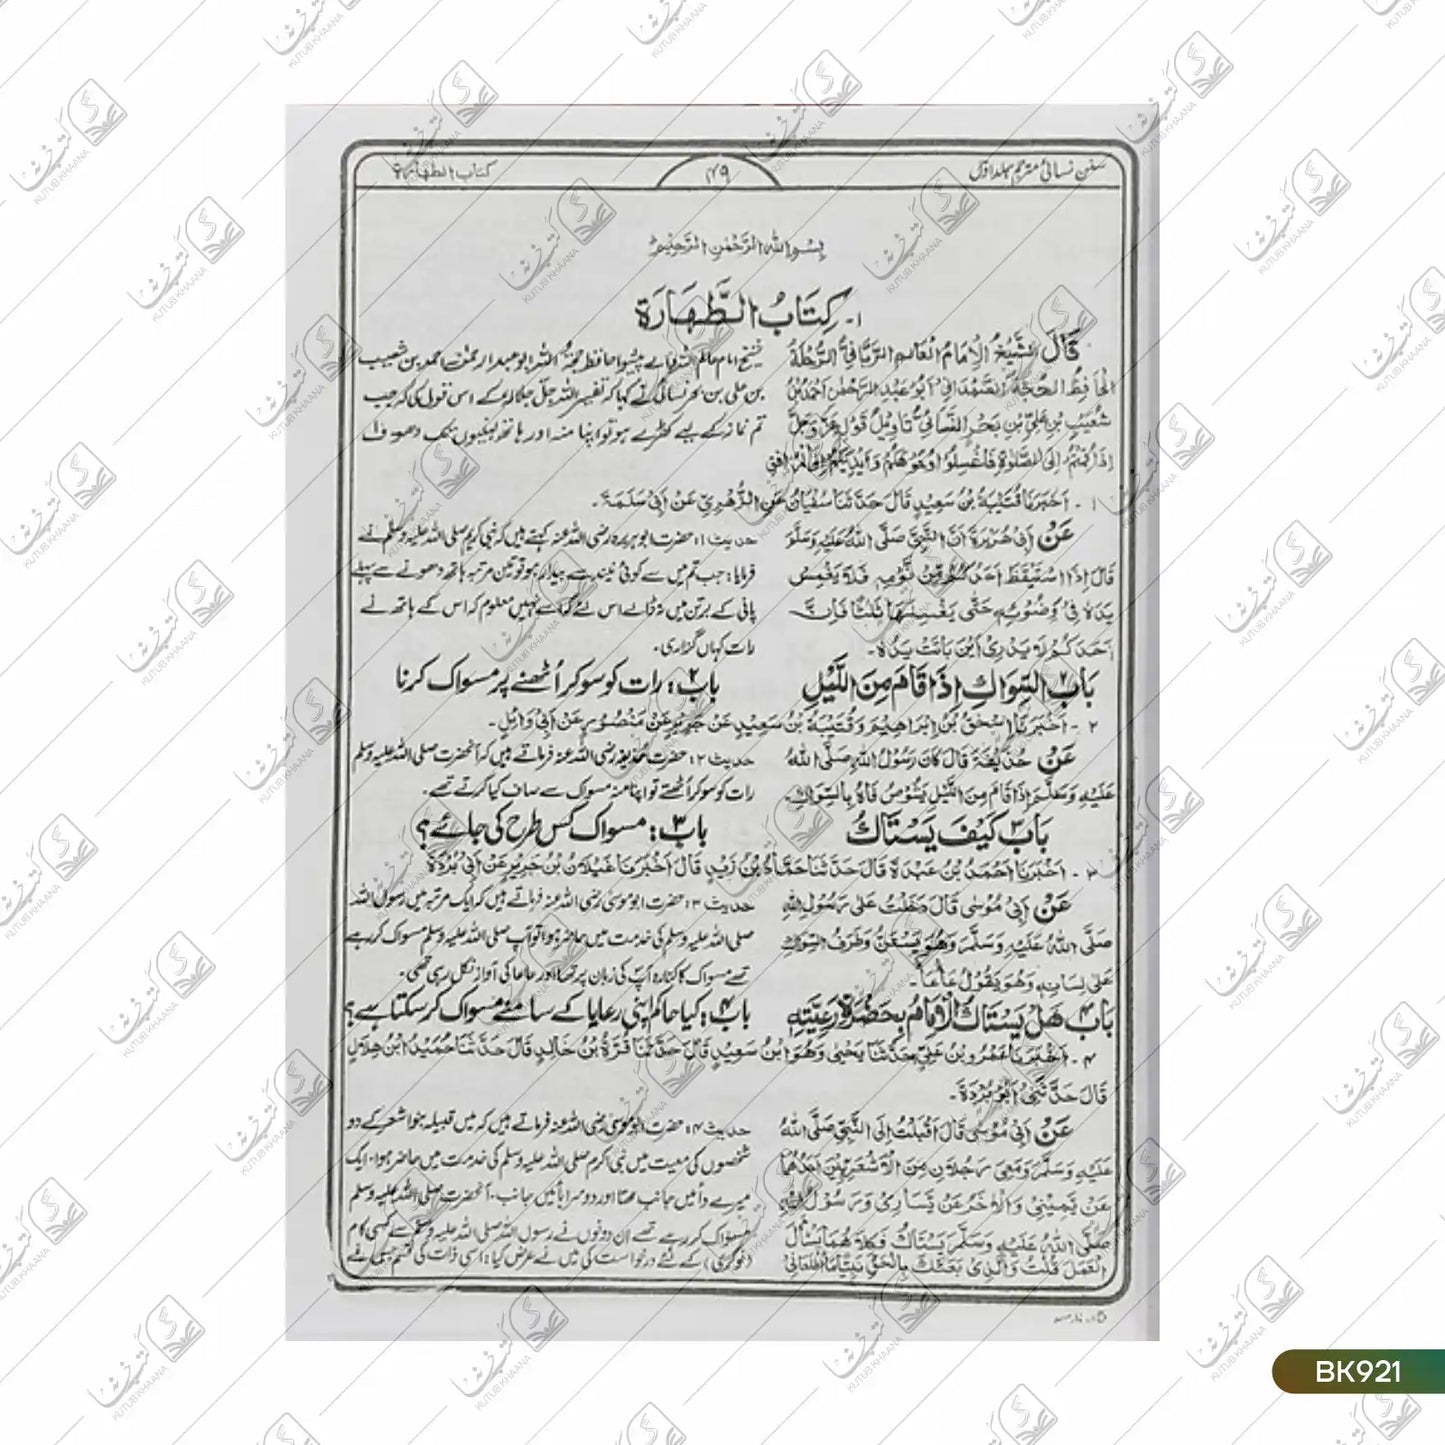 سنن نسائی مترجم جلد اول
۴۹
کتاب الطہارۃ
بِسْمِ اللهِ الرَّحْمٰنِ الرَّحِيْمِ
۱- كِتَابُ الطَّهَارَةِ
قَالَ الشَّيْخُ الْاِمَامُ الْعَالِمُ الرَّبَّانِيُّ الرُّحْلَةُ
الْحَافِظُ الْحُجَّةُ الصَّمَدَانِيُّ اَبُوْ عَبْدِ الرَّحْمٰنِ اَحْمَدُ بْنُ
شُعَيْبِ بْنِ عَلِيِّ بْنِ بَحْرٍ النَّسَائِيُّ تَاوِيْلُ قَوْلِ عَزَّ وَجَلَّ
اِذَا قُمْتُمْ اِلَى الصَّلٰوةِ فَاغْسِلُوْا وُجُوْهَكُمْ وَاَيْدِيَكُمْ اِلَى الْمَرَافِقِ
شیخ امام عالم ربانی پیشوا حافظ حجۃ ابو عبد الرحمٰن احمد بن شعیب
بن علی بن بحر نسائی نے کہا کہ تفسیر اللہ جل جلالہ کے اس قول کی کہ جب
تم نماز کے لیے کھڑے ہو تو اپنا منہ اور ہاتھ کہنیوں تک دھوؤ
۱- اَخْبَرَنَا قُتَيْبَةُ بْنُ سَعِيْدٍ قَالَ حَدَّثَنَا سُفْيَانُ عَنِ الزُّهْرِيِّ عَنْ اَبِيْ سَلَمَةَ۔
عَنْ اَبِيْ هُرَيْرَةَ اَنَّ النَّبِيَّ صَلَّى اللهُ عَلَيْهِ وَسَلَّمَ
قَالَ اِذَا اسْتَيْقَظَ اَحَدُكُمْ مِّنْ نَّوْمِهٖ فَلَا يَغْمِسْ
يَدَهٗ فِيْ وَضُوْئِهٖ حَتّٰى يَغْسِلَهَا ثَلٰثًا فَاِنَّ
اَحَدَكُمْ لَا يَدْرِيْ اَيْنَ بَاتَتْ يَدُهٗ۔
حدیث ۱: حضرت ابوہریرہ رضی اللہ عنہ کہتے ہیں کہ نبی کریم صلی اللہ علیہ وسلم نے
فرمایا: جب تم میں سے کوئی نیند سے بیدار ہو تو تین مرتبہ ہاتھ دھونے سے پہلے
پانی کے برتن میں نہ ڈالے اس لئے کہ اسے نہیں معلوم کہ اس کے ہاتھ نے
رات کہاں گزاری۔
بَابُ۲ السِّوَاكِ اِذَا قَامَ مِنَ اللَّيْلِ
باب۲: رات کو سو کر اُٹھنے پر مسواک کرنا
۲- اَخْبَرَنَا اِسْحٰقُ بْنُ اِبْرَاهِيْمَ وَقُتَيْبَةُ بْنُ سَعِيْدٍ عَنْ جَرِيْرٍ عَنْ مَنْصُوْرٍ عَنْ اَبِيْ وَائِلٍ۔
عَنْ حُذَيْفَةَ قَالَ كَانَ رَسُوْلُ اللهِ صَلَّى اللهُ
عَلَيْهِ وَسَلَّمَ اِذَا قَامَ مِنَ اللَّيْلِ يَشُوْصُ فَاهُ بِالسِّوَاكِ۔
حدیث ۲: حضرت حذیفہ رضی اللہ عنہ فرماتے ہیں کہ آنحضرت صلی اللہ علیہ وسلم
رات کو سو کر اُٹھتے تو اپنا منہ مسواک سے صاف کیا کرتے تھے۔
بَابُ۳ كَيْفَ يَسْتَاكُ
باب۳: مسواک کس طرح کی جائے؟
۳- اَخْبَرَنَا اَحْمَدُ بْنُ عَبْدَةَ قَالَ حَدَّثَنَا حَمَّادُ بْنُ زَيْدٍ قَالَ اَخْبَرَنَا غَيْلَانُ بْنُ جَرِيْرٍ عَنْ اَبِيْ بُرْدَةَ
عَنْ اَبِيْ مُوْسٰى قَالَ دَخَلْتُ عَلٰى رَسُوْلِ اللهِ
صَلَّى اللهُ عَلَيْهِ وَسَلَّمَ وَهُوَ يَسْتَنُّ وَطَرَفُ السِّوَاكِ
عَلٰى لِسَانِهٖ وَهُوَ يَقُوْلُ عَاْعَاْ۔
حدیث ۳: حضرت ابو موسیٰ رضی اللہ عنہ فرماتے ہیں کہ ایک مرتبہ میں رسول اللہ
صلی اللہ علیہ وسلم کی خدمت میں حاضر ہوا تو آپ صلی اللہ علیہ وسلم مسواک کر رہے
تھے مسواک کا کنارہ آپ کی زبان پر تھا اور عاعا کی آواز نکل رہی تھی۔
بَابُ۴ هَلْ يَسْتَاكُ الْاِمَامُ بِحَضْرَةِ رَعِيَّتِهٖ
باب۴: کیا حاکم اپنی رعایا کے سامنے مسواک کر سکتا ہے؟
۴- اَخْبَرَنَا عَمْرُو بْنُ عَلِيٍّ حَدَّثَنَا يَحْيٰى وَهُوَ ابْنُ سَعِيْدٍ قَالَ حَدَّثَنَا قُرَّةُ بْنُ خَالِدٍ قَالَ حَدَّثَنَا حُمَيْدُ ابْنُ هِلَالٍ
قَالَ حَدَّثَنِيْ اَبُوْ بُرْدَةَ۔
عَنْ اَبِيْ مُوْسٰى قَالَ اَقْبَلْتُ اِلَى النَّبِيِّ صَلَّى اللهُ
عَلَيْهِ وَسَلَّمَ وَمَعِيَ رَجُلَانِ مِنَ الْاَشْعَرِيِّيْنَ اَحَدُهُمَا
عَنْ يَّمِيْنِيْ وَالْاٰخَرُ عَنْ يَّسَارِيْ وَرَسُوْلُ اللهِ
صَلَّى اللهُ عَلَيْهِ وَسَلَّمَ يَسْتَاكُ فَكِلَاهُمَا يَسْأَلُ
الْعَمَلَ قُلْتُ وَالَّذِيْ بَعَثَكَ بِالْحَقِّ نَبِيًّا مَا اَطْلَعَانِيْ
حدیث ۴: حضرت ابو موسیٰ رضی اللہ عنہ فرماتے ہیں کہ میں قبیلہ بنو اشعر کے دو
شخصوں کی معیت میں نبی اکرم صلی اللہ علیہ وسلم کی خدمت میں حاضر ہوا۔ ایک
میرے دائیں جانب تھا اور دوسرا بائیں جانب۔ آنحضرت صلی اللہ علیہ وسلم
مسواک کر رہے تھے ان دونوں نے رسول اللہ صلی اللہ علیہ وسلم سے کسی کام
(نوکری) کے لئے درخواست کی میں نے عرض کیا: اسی ذات کی قسم جس نے
BK921
KUTUB KHAANA